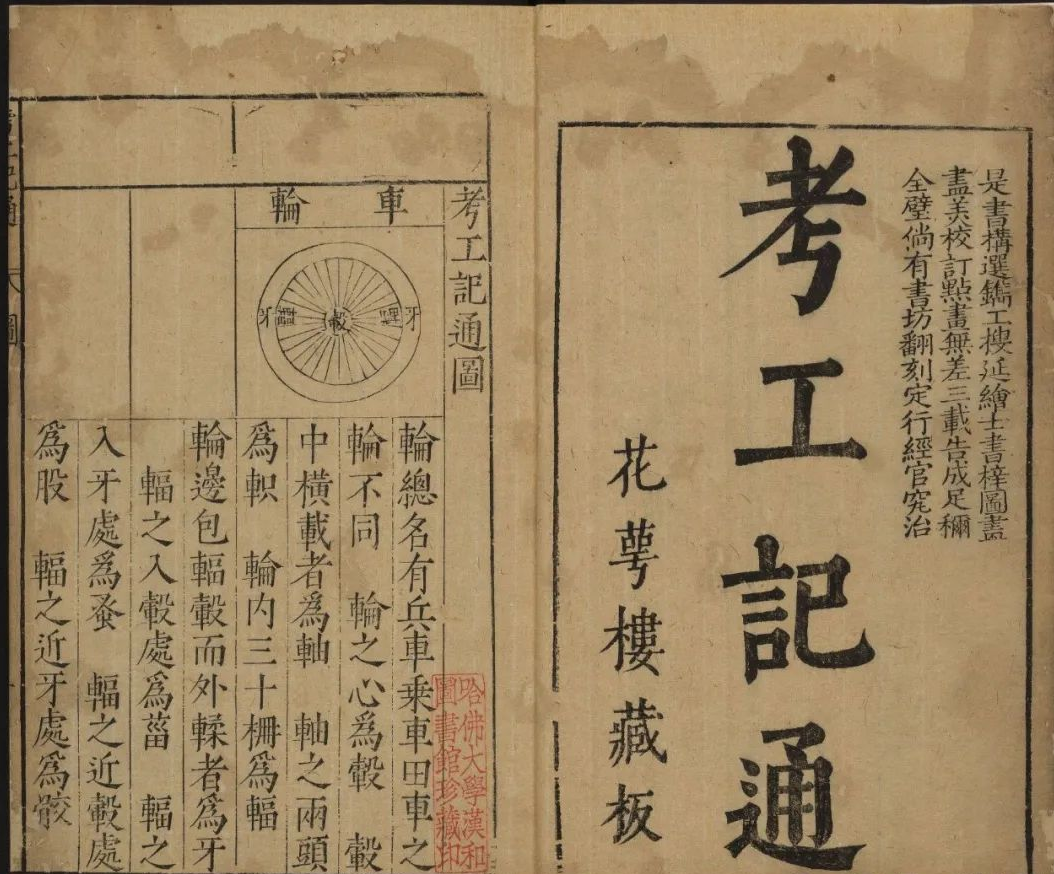 是書構選鐫工搜延繪士書梓圖畫
盡美校訂點畫無差三載告成足稱
全璧倘有書坊翻刻定行經官究治
考工記通
花萼樓藏板
考工記通圖
車輪
牙
轂
牙
輪總名有兵車乗車田車之
輪不同 輪之心爲轂 轂
中横載者爲軸 軸之兩頭
爲軹 輪内三十柵爲輻
輪邊包輻轂而外輮者爲牙
輻之入轂處爲菑 輻之
入牙處爲蚤 輻之近轂處
爲股 輻之近牙處爲骹
哈佛大學漢和
圖書館珍藏印